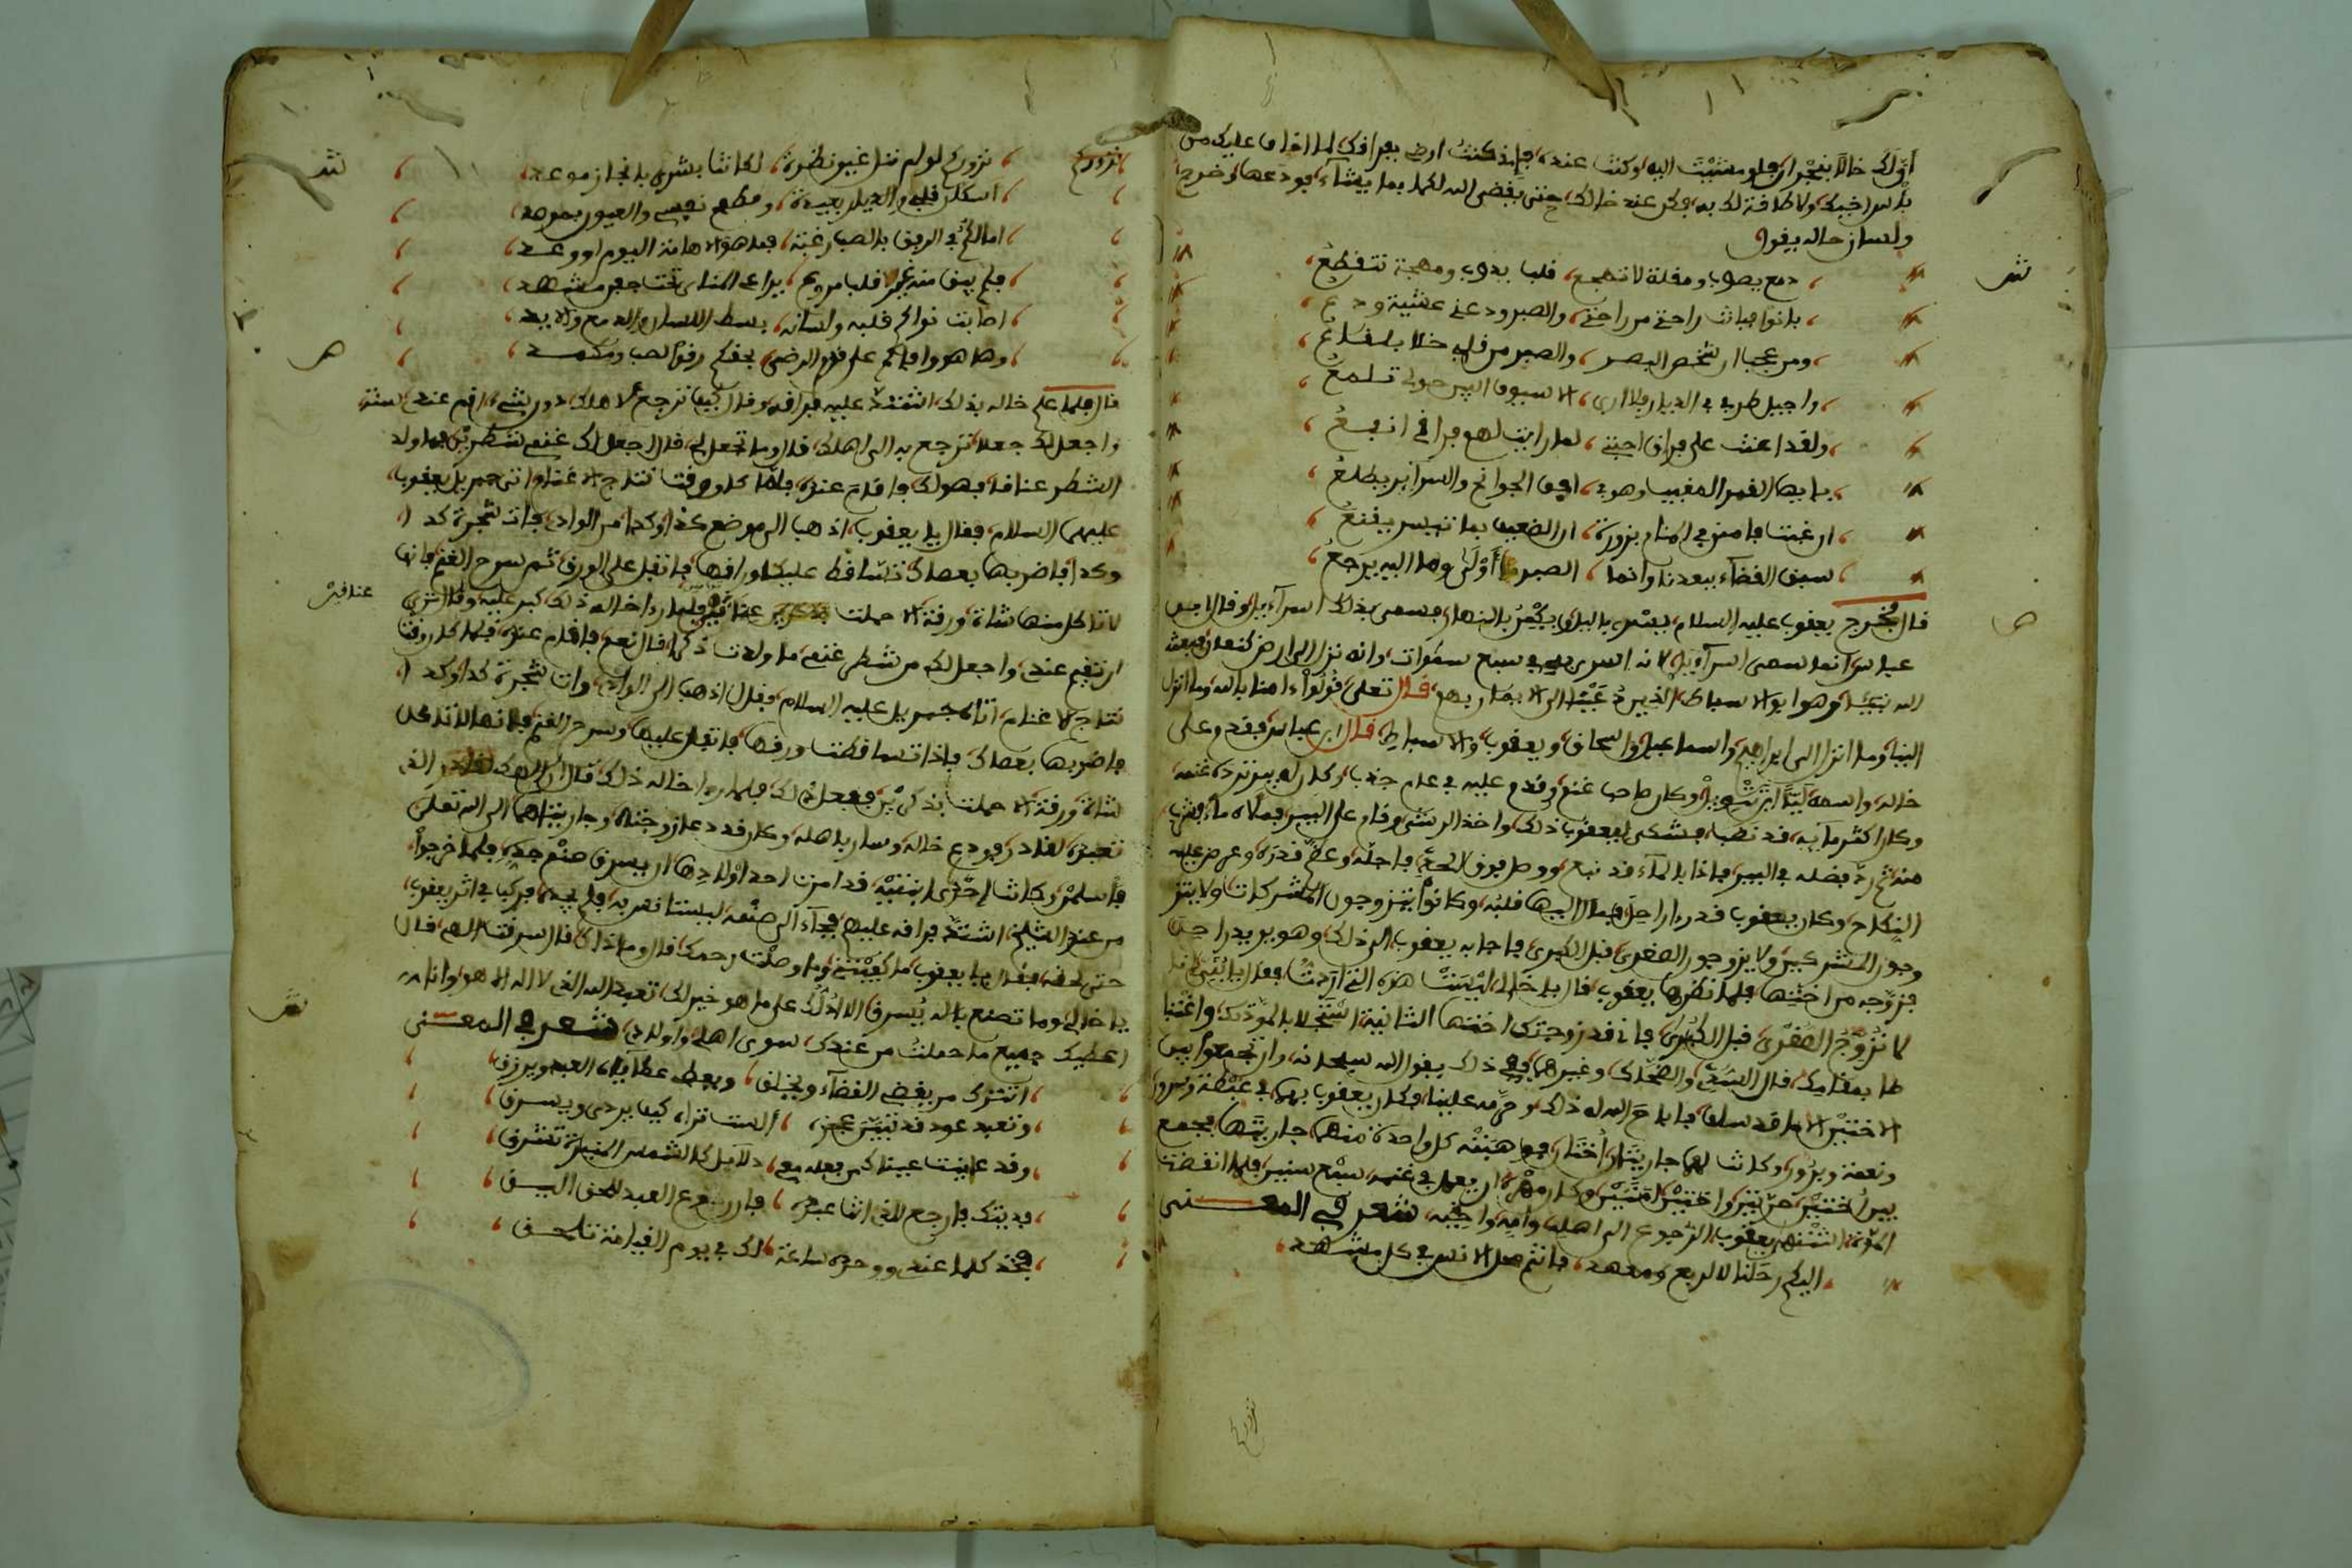 أن لك خالا بنجران فلو مشيت اليه وكنت عنده، فإني كنت ارضى بفراقك لما اخاف عليك من
باس اخيك ولا طاقة لك به، فكن عند خالك حتى يقضي الله لكما بما يشآء، فودعها وخرج
ولسان حاله يقول
دمع يصوب ومقلة لا تهجع، قلب يذوب ومهجة تتقطع،
بانوا فبانت راحتي من راحتي، والصبر ودعني عشية ودع،
ومن عجب ان شخص البصر، والصبر من قلبي خلا بلقلع،
واجيل طرفي في الديار فلا ارى، الا سيوف البين حولي تلمع
ولقد اعنت على فراق احبتي، لما رايت لهم فراقي انفع،
يا ايها القمر المغيب وهو في، افق الجوانح والسرائر يطلع،
ان غبت فامنن في المنام بزورة، ان الضعيف بما تيسر يقنع،
سبق القضآء ببعدنا وانما، الصبر أولى وما اليه يرجع،
قال فخرج يعقوب عليه السلام، يسري بالليل ويكمن بالنهار، فسمي بذلك اسرآءيل، وقال ابن
عباس انما سمي اسرآءيل، لانه اسري به في سبع سموات، وانه نزل الى ارض كنعان فبعثه
الله نبيئا، وهو ابو الاسباط، الذين دعينا الى الايمان بهم، قال تعلى قولوا ءامنا بالله وما انزل
الينا وما انزل الى ابراهيم، واسماعيل، واسحاق، ويعقوب، والاسباط، قال ابن عباس فقدم على
خاله، واسمه ليا ابن تنويل، وكان صاحب غنم، وقدم عليه في عام جدب، وكان له بير تردها غنمه،
وكان اكثر مآئه، قد نضب، فشكى ليعقوب ذلك، واخذ الرشى وقام على البير فملاه ماء فشرب
منه، ثم رد فضله في البير، فاذا بالمآء قد نبع، ووصل فوق الحجر، فاجله، وعظم قدره، وعرض عليه
النكاح، وكان يعقوب قد راى راحيل، فمال اليها قلبه، وكانوا يتزوجون المشركات، ولا يتز
وجون المشركين، ولا يزوجون الصغرى، قبل الكبرى، فاجابه يعقوب الى ذلك، وهو يريد راحيل
فزوجه من اختها، فلما نظرها يعقوب، قال يا خال، ليست هذه التي اردت، فقال يا بني انا
لا نزوج الصغرى، قبل الكبرى، فاني قد زوجتك اختها الثانية، استجلابا لمودتك، واغتنا
ما بمقامك، قال السدي، والضحاك، وغيرهما، وفي ذلك يقول الله سبحانه، وان تجمعوا بين
الاختين الا ما قد سلف، فاباح الله له ذلك، وحرمه علينا، وكان يعقوب بهما في غبطة وسرور
ونعمة وبرور، وكانت لهما جاريتان، اختان، فوهبته كل واحدة منهما جاريتها، فجمع
بين اختين حرتين، واختين امتين، وكان مهره ان يعمل في غنمه، سبع سنين، فلما انقضت
المدة اشتهى يعقوب، الرجوع الى اهله، وامه، واخيه، شعر في المعنى
اليكم رحلنا لا لربع ومعهد، فانتم هل الانس في كل مشهد،
نزوركم
نزوركم لو لم ننل غير نظرة، لكانت بشرى بانجاز موعد،
اسكان قلبي والديار بعيدة، ومطمع نفسي والعيون بمرصد
اما لكم في الرفق بالصب رغبة، فما هو الا هامة اليوم او وغد
فلم يبق منه غير قلب مروع، يراعي المنى تحت جفن مسهد
اصابت نواكم قلبه ولسانه، بسط اللسان والدمع واليد،
وها هو وافاكم على قدم الرضى، بحقكم رفقا لصب ومكمد،
قال فلما علم خاله بذلك، اشتد عليه فراقه، وقال كيف ترجع لاهلك، دون شيء، اقم عندي سنة
واجعل لك جعلا، ترجع به الى اهلك، قال وما تجعل لي، قال اجعل لك غنمي شطرين فما ولد
الشطر عناقا، فهو لك، فاقام عنده، فلما كان وقت نتاج الاغنام، اتى جبريل يعقوب،
عليهما السلام، فقال يا يعقوب، اذهب الى موضع كذا وكذا، من الواد، فات شجرة كذا،
وكذا فاضربها بعصاك تتساقط عليك اوراقها، فاتفل على الورق، ثم سرح الغنم، فانه
لا تاكل منها شاة ورقة، الا حملت عناقين، فلما راى خاله ذلك، كبر عليه، وقال تريد
عناقين
ان تقيم عندي، واجعل لك من شطر غنمي، ما ولدت ذكرا، قال نعم، فاقام عنده، فلما كان وقت
نتاج الاغنام، اتاه جبريل عليه السلام، فقال اذهب الى الواد، وات شجرة كذا وكذا،
فاضربها بعصاك، فاذا تساقطت ورقها، فاتفل عليها، وسرح الغنم فانها لا تاكل
شاة ورقة، الا حملت بذكرين، ففعل ذلك، فلما راى خاله ذلك، قال ان الهك لقادر الذي
تعبده لقادر، فودع خاله، وسار باهله، وكان قد دعا زوجتاه، وجاريتاهما الى الله تعلى
فأسلمن، وكانت احدى ابنتيه، قد امرت احد اولادها ان يسرق صنم جده، فلما خرجوا،
من عند الشيخ، اشتد فراقه عليهم، فجآء الى صنمه، ليستانس به، فلم يجده، فركب في اثر يعقوب،
حتى لحقه، فقال يا يعقوب، ما كفيتني، وما وصلت رحمك، قال وما ذاك، قال سرقت الهي، قال
يا خالي، وما تصنع باله يسرق، الا ادلك على ما هو خير لك، تعبد الله الذي لا اله الا هو، وانا
اعطيك جميع ما حملت من عندك، سوى اهلي، واولادي، شعر في المعنى
اتترك من يقضي القضآء ويخلق، ويعطي عطاياه العبيد ويرزق
وتعبد عود قد تبين عجزه، ألست تراه كيف يرمى ويسرق
وقد عاينت عيناك من فعله معي، دلائل كالشمس المنيرة تشرق،
فديتك فارجع للذي انت عبده، فان رجوع العبد للحق اليق،
فخذ كلما عندي ووحده ساعة، لك في يوم القيامة تلحق،